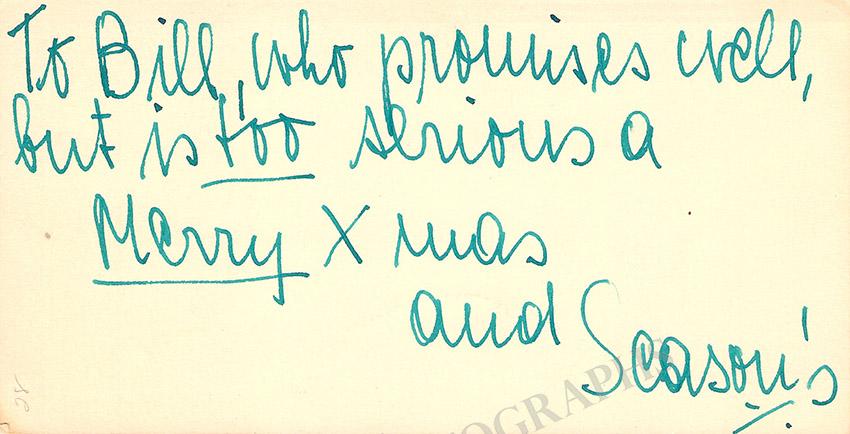 To Bill, who promises well,
but is too serious a
Merry Xmas
and Season's
TOGRAPHS
28